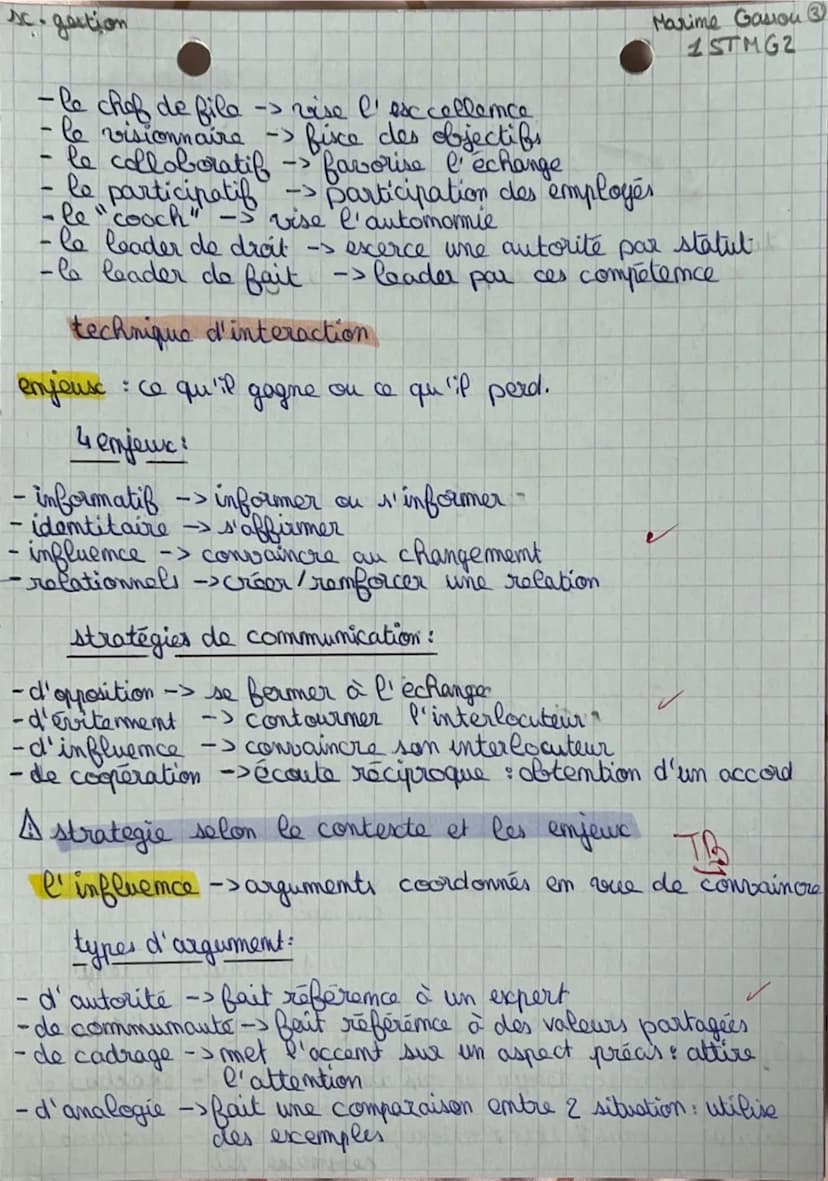 sc. gestion
Maxime Gassou ③
1STMG2
- le chef de file -> vise l'excellence
- le visionnaire -> fixe des objectifs
- le collaboratif -> favorise l'échange
- le participatif -> participation des employés
- le "coach" -> vise l'autonomie
- le leader de droit -> exerce une autorité par statut
- le leader de fait -> leader par ces compétence
technique d'interaction
enjeux : ce qu'il gagne ou ce qu'il perd.
4 enjeux :
- informatif -> informer ou s'informer
- identitaire -> s'affirmer
- influence -> convaincre au changement
- relationnels -> créer/renforcer une relation
stratégies de communication :
- d'opposition -> se fermer à l'échange
- d'évitement -> contourner l'interlocuteur
- d'influence -> convaincre son interlocuteur
- de coopération -> écoute réciproque : obtention d'un accord
⚠ strategie selon le contexte et les enjeux
TB
l'influence -> arguments coordonnés en vue de convaincre
types d'argument :
- d'autorité -> fait référence à un expert
- de communauté -> fait référence à des valeurs partagées
- de cadrage -> met l'accent sur un aspect précis : attire
l'attention
- d'analogie -> fait une comparaison entre 2 situation : utilise
des exemples